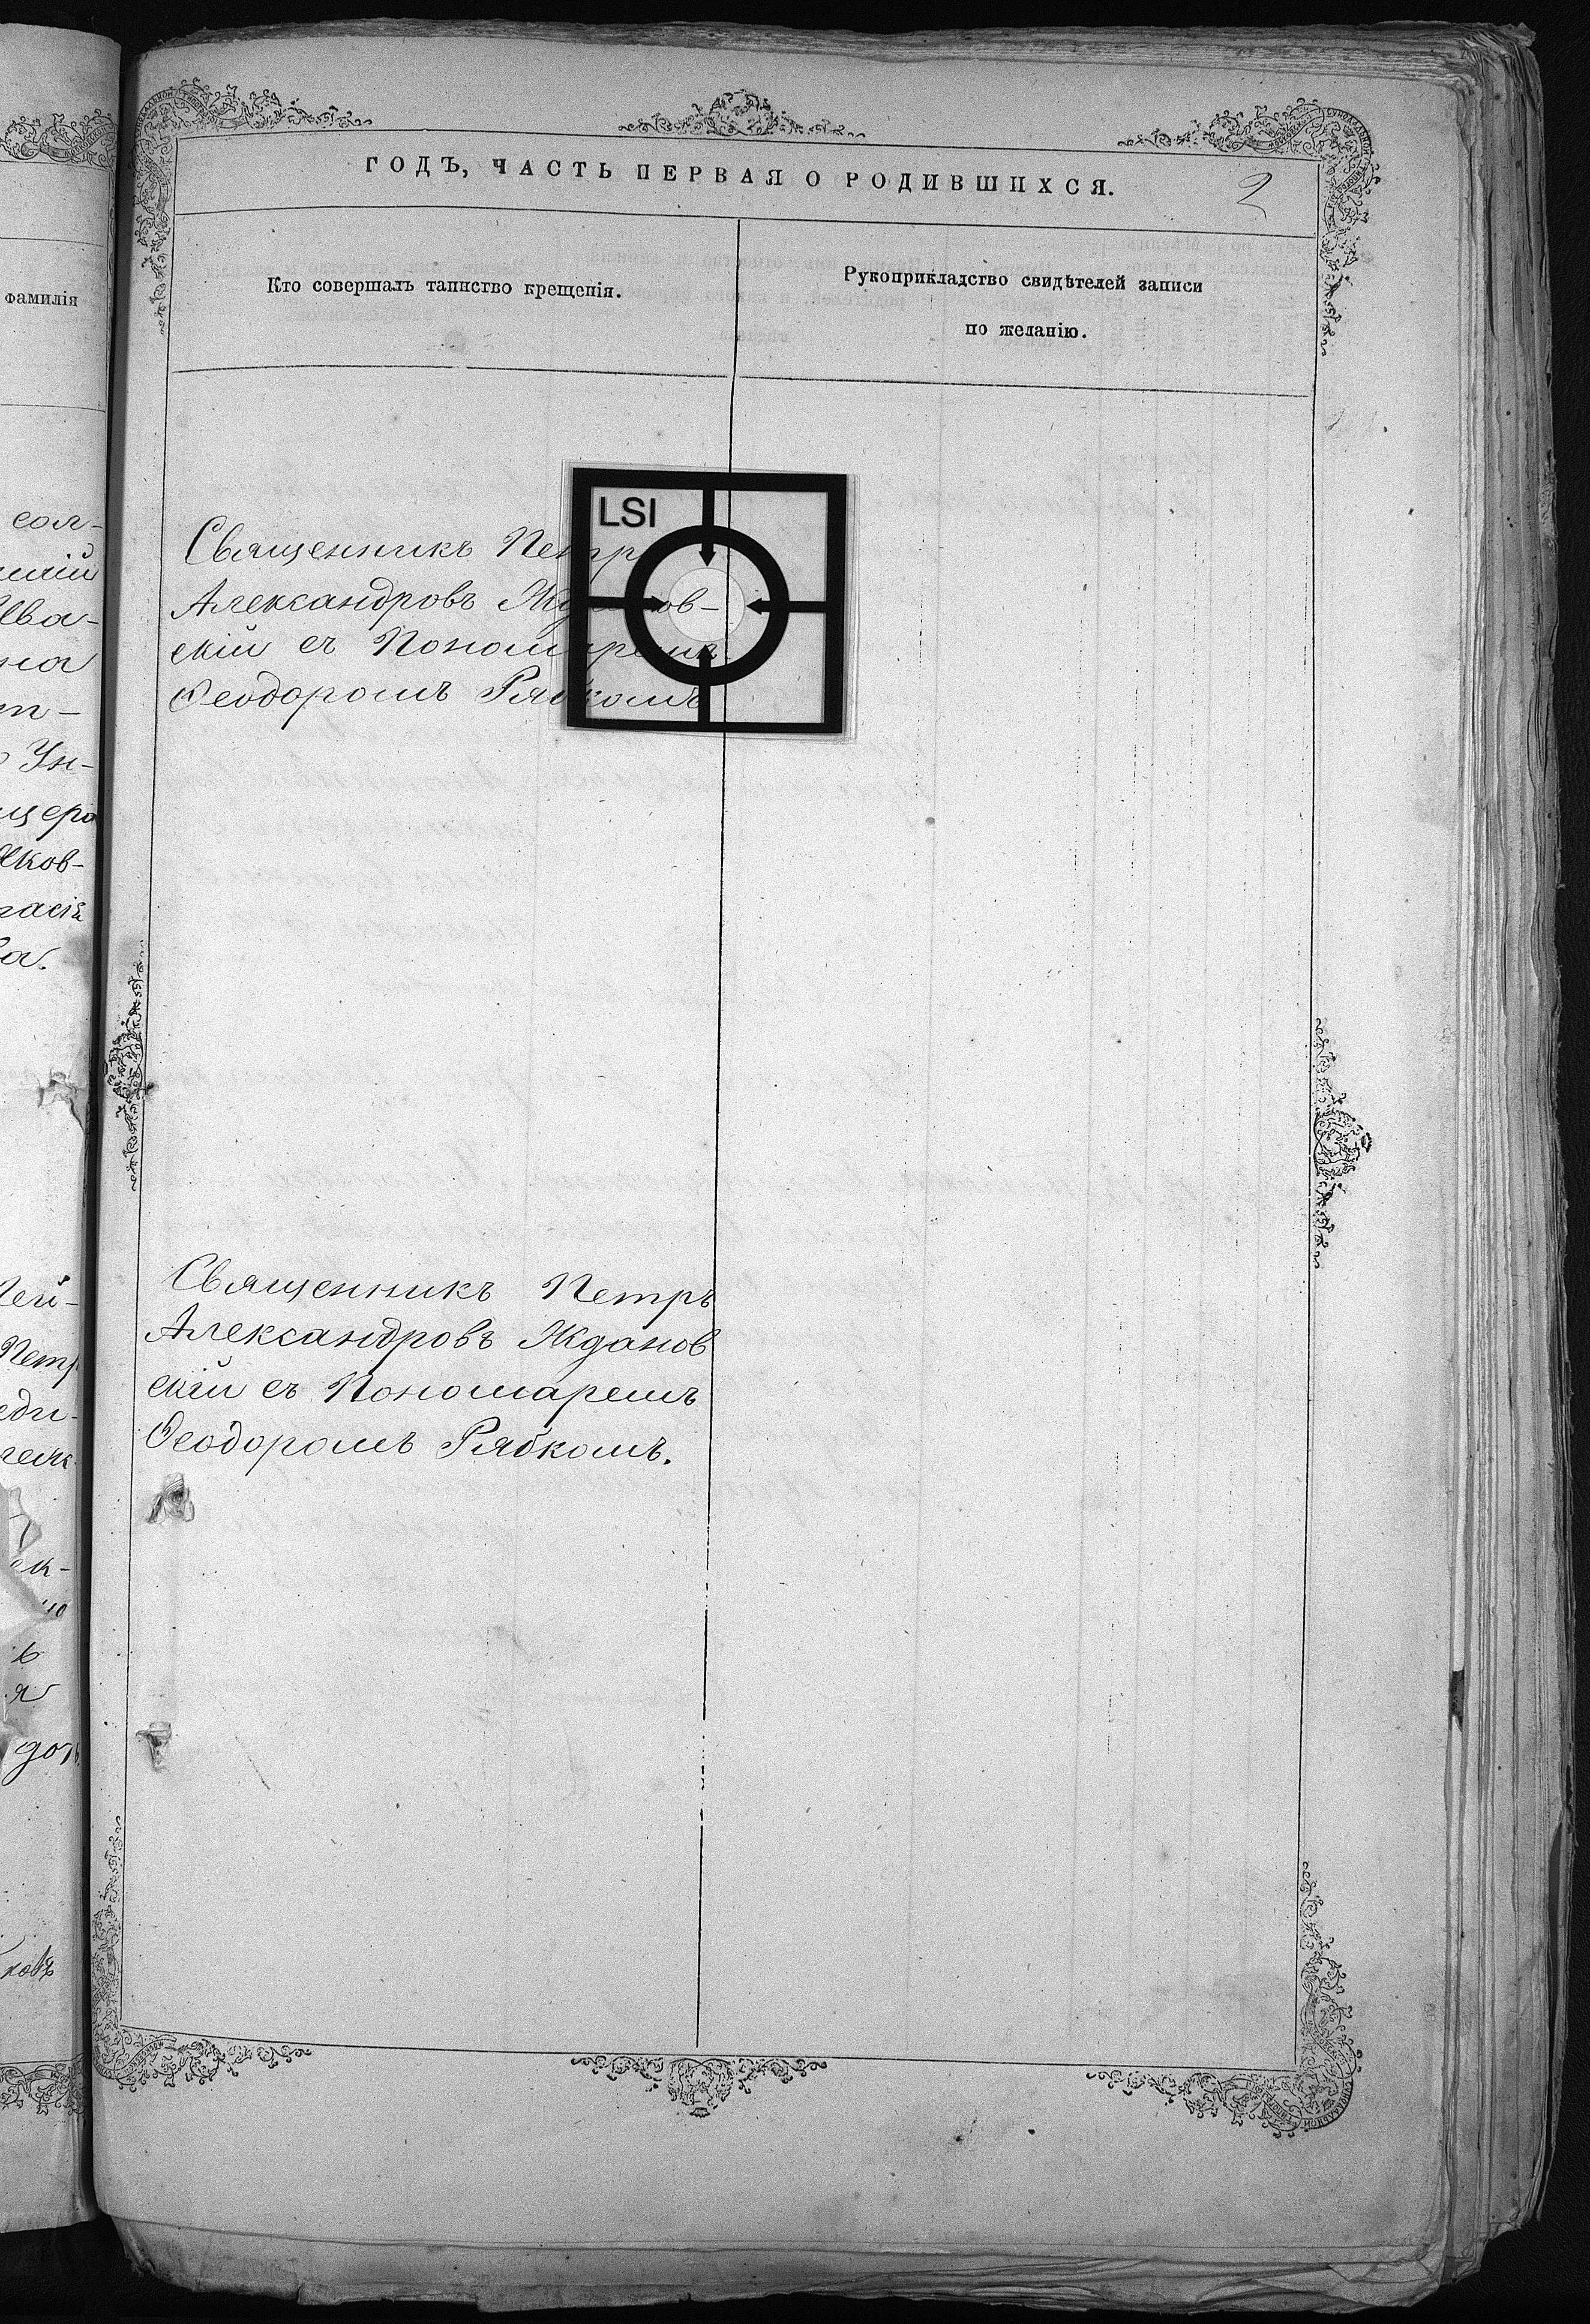 ГОДЪ, ЧАСТЬ ПЕРВАЯ О РОДИВШИХСЯ.
2
фамилія
Кто совершалъ таинство крещенія.
Рукоприкладство свидѣтелей записи
по желанію.
LSI
Священникъ Петръ
Александровъ Жданов-
скій съ Пономаремъ
Ѳеодоромъ Рябкомъ
Священникъ Петръ
Александровъ Жданов
скій съ Пономаремъ
Ѳеодоромъ Рябкомъ.